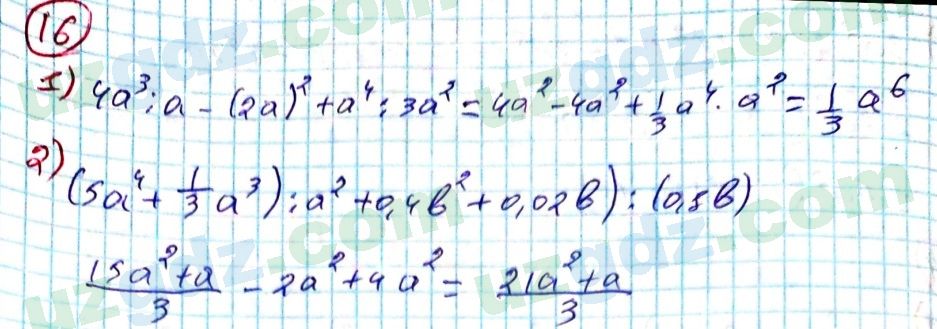 16
1) 4a³ : a - (2a)² + a⁴ : 3a² = 4a² - 4a² + 1/3 a⁴ · a² = 1/3 a⁶
2) (5a⁴ + 1/3 a³) : a² + 0,4b² + 0,02b) : (0,5b)
15a² + a / 3 - 2a² + 4a² = 21a² + a / 3
uzgdz.com